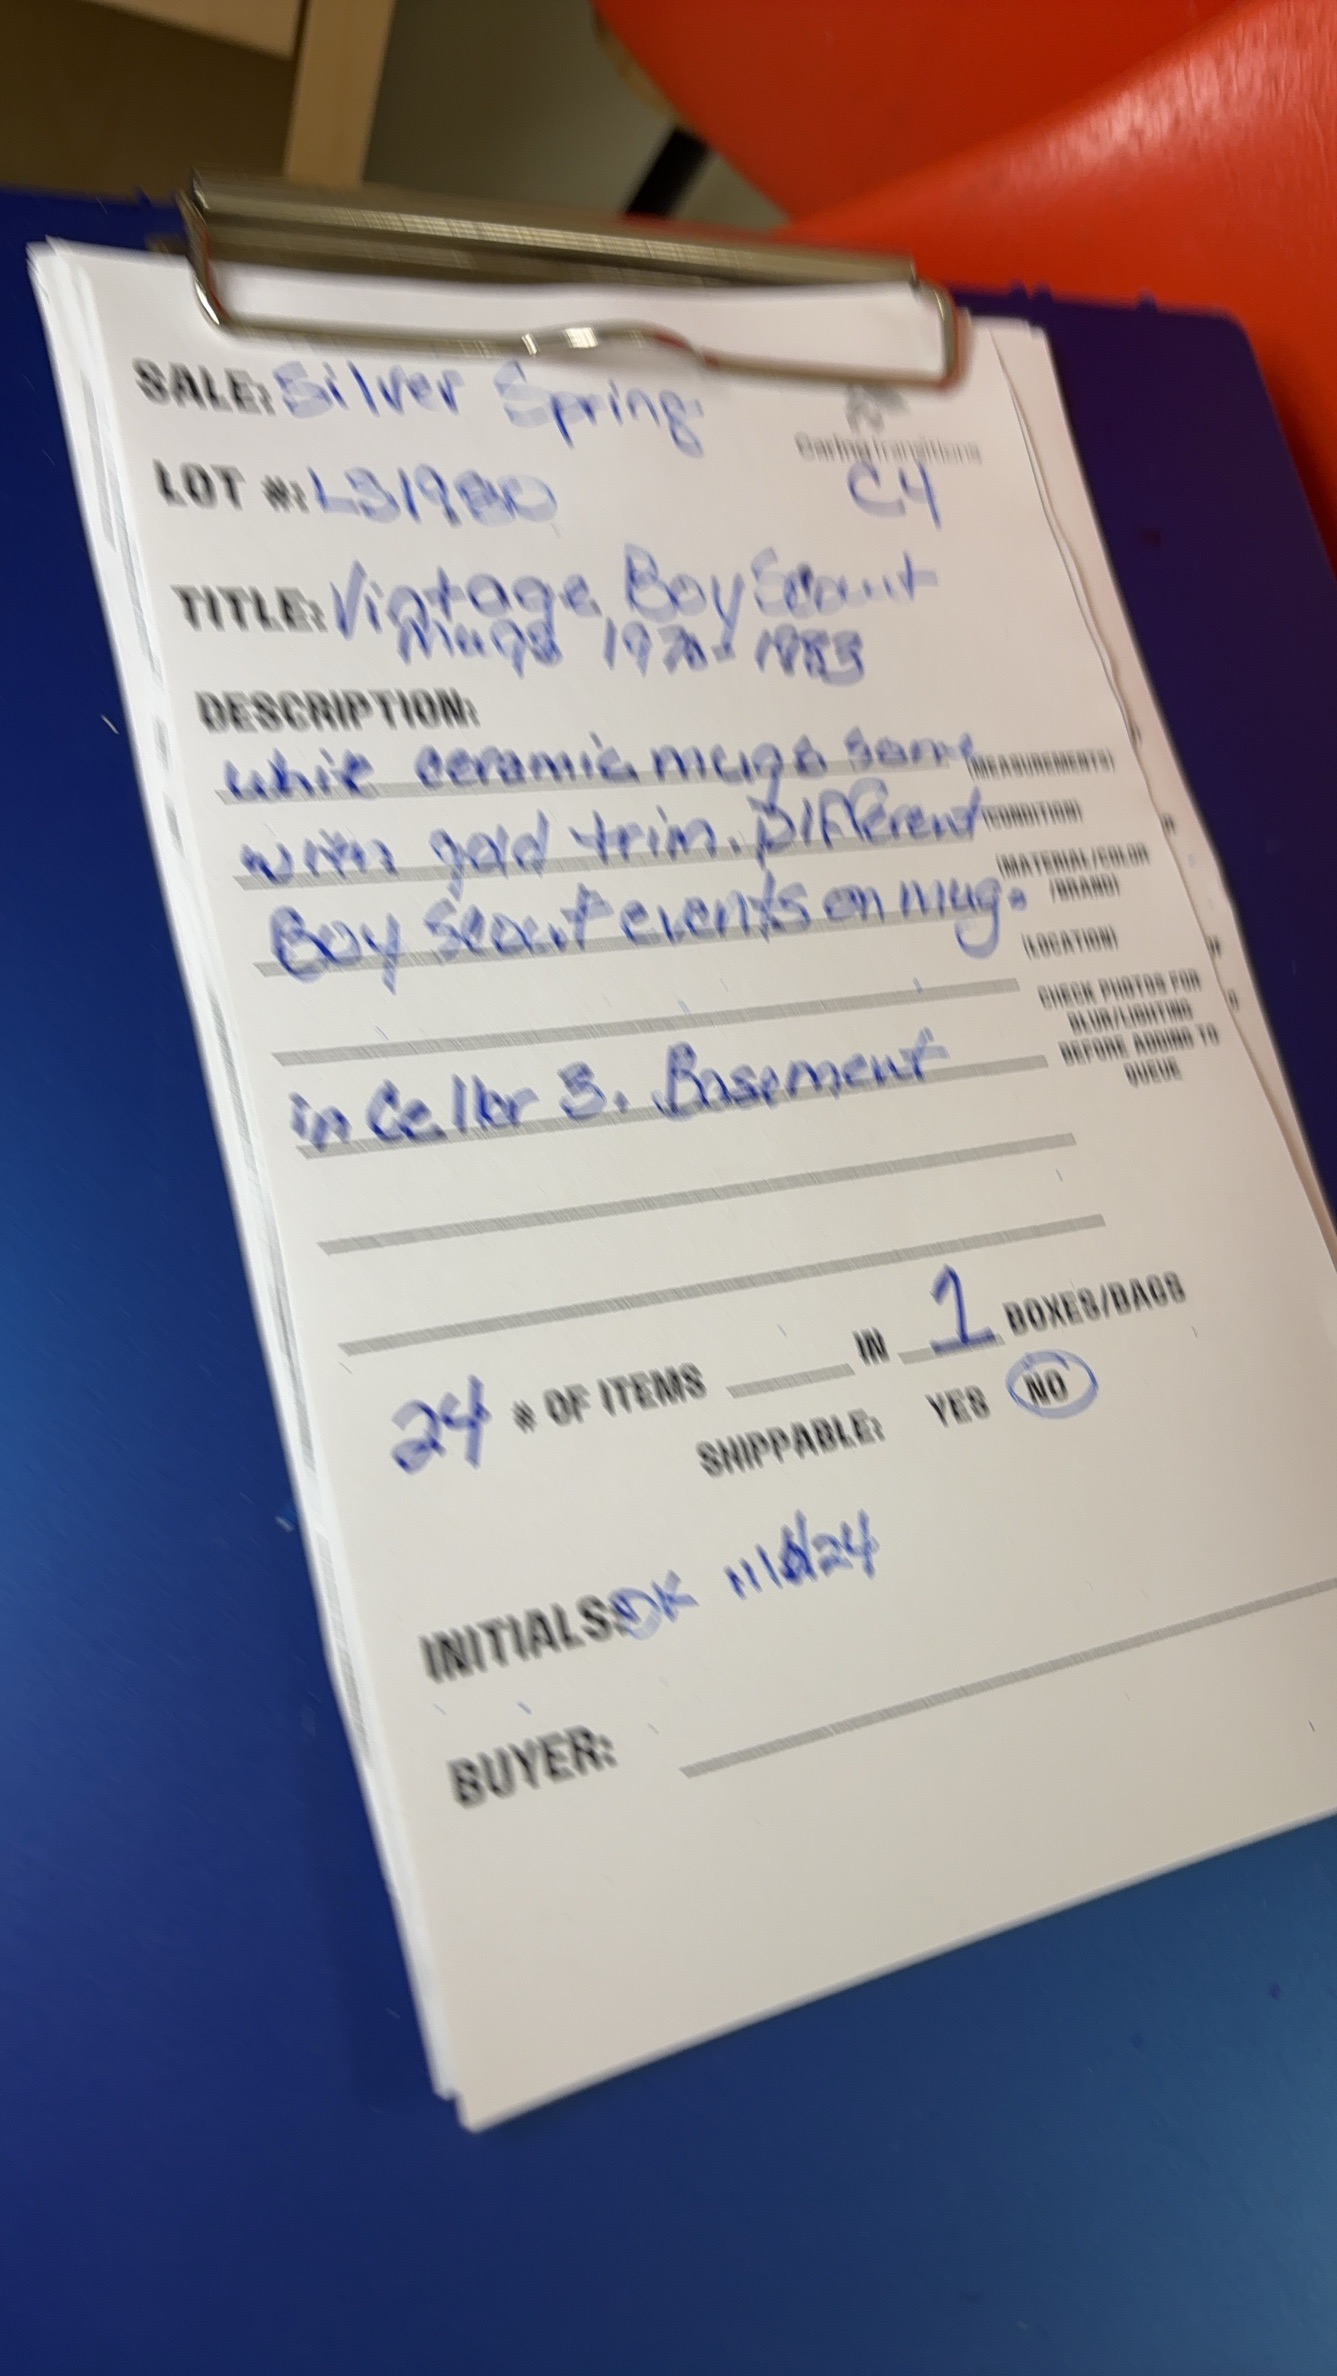 SALE: Silver Spring
Caring Transitions
LOT #: LS1980
C4
TITLE: Vintage Boy Scout
Mugs 1970-1983
DESCRIPTION:
white ceramic mugs some
(MEASUREMENTS)
with gold trim. Different
(CONDITION)
(MATERIAL/COLOR
/BRAND)
Boy Scout events on mug.
(LOCATION)
CHECK PHOTOS FOR
BLUR/LIGHTING
BEFORE ADDING TO
QUEUE
in Celler 3. Basement
24 # OF ITEMS IN 1 BOXES/BAGS
SHIPPABLE: YES NO
INITIALS: DK
BUYER: